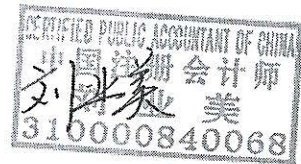 CERTIFIED PUBLIC ACCOUNTANT OF CHINA
中国注册会计师
刘业美
310000840068